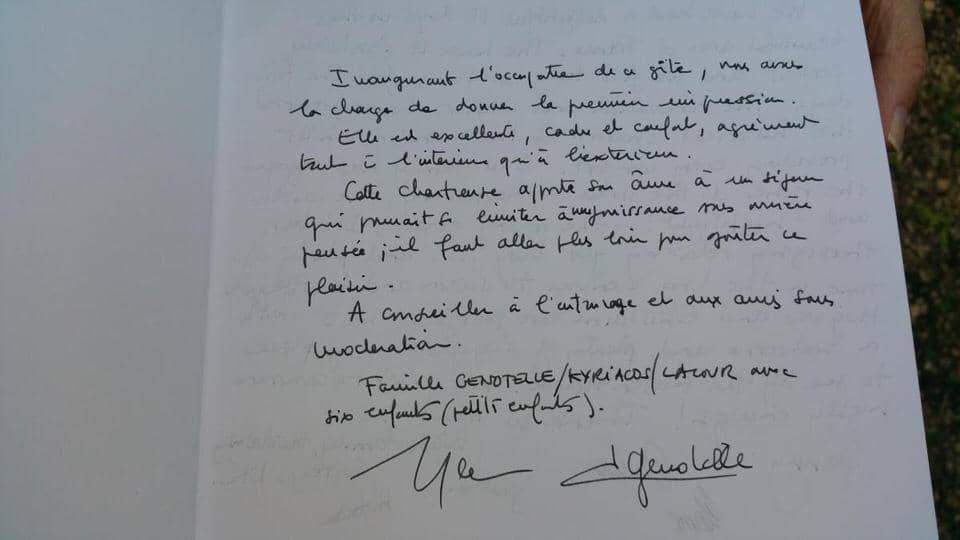 Inaugurant l'occupation de ce gîte, nous avons
la charge de donner la première impression.
Elle est excellente, cadre et confort, agrément
tant à l'intérieur qu'à l'extérieur.
Cette chartreuse apporte son âme à un séjour
qui pourrait se limiter à une jouissance sans arrière
pensée ; il faut aller plus loin pour goûter ce
plaisir.
A conseiller à l'entourage et aux amis sans
modération.
Famille GENOTELLE/KYRIACOS/LATOUR avec
six enfants (petits enfants).
Genotelle